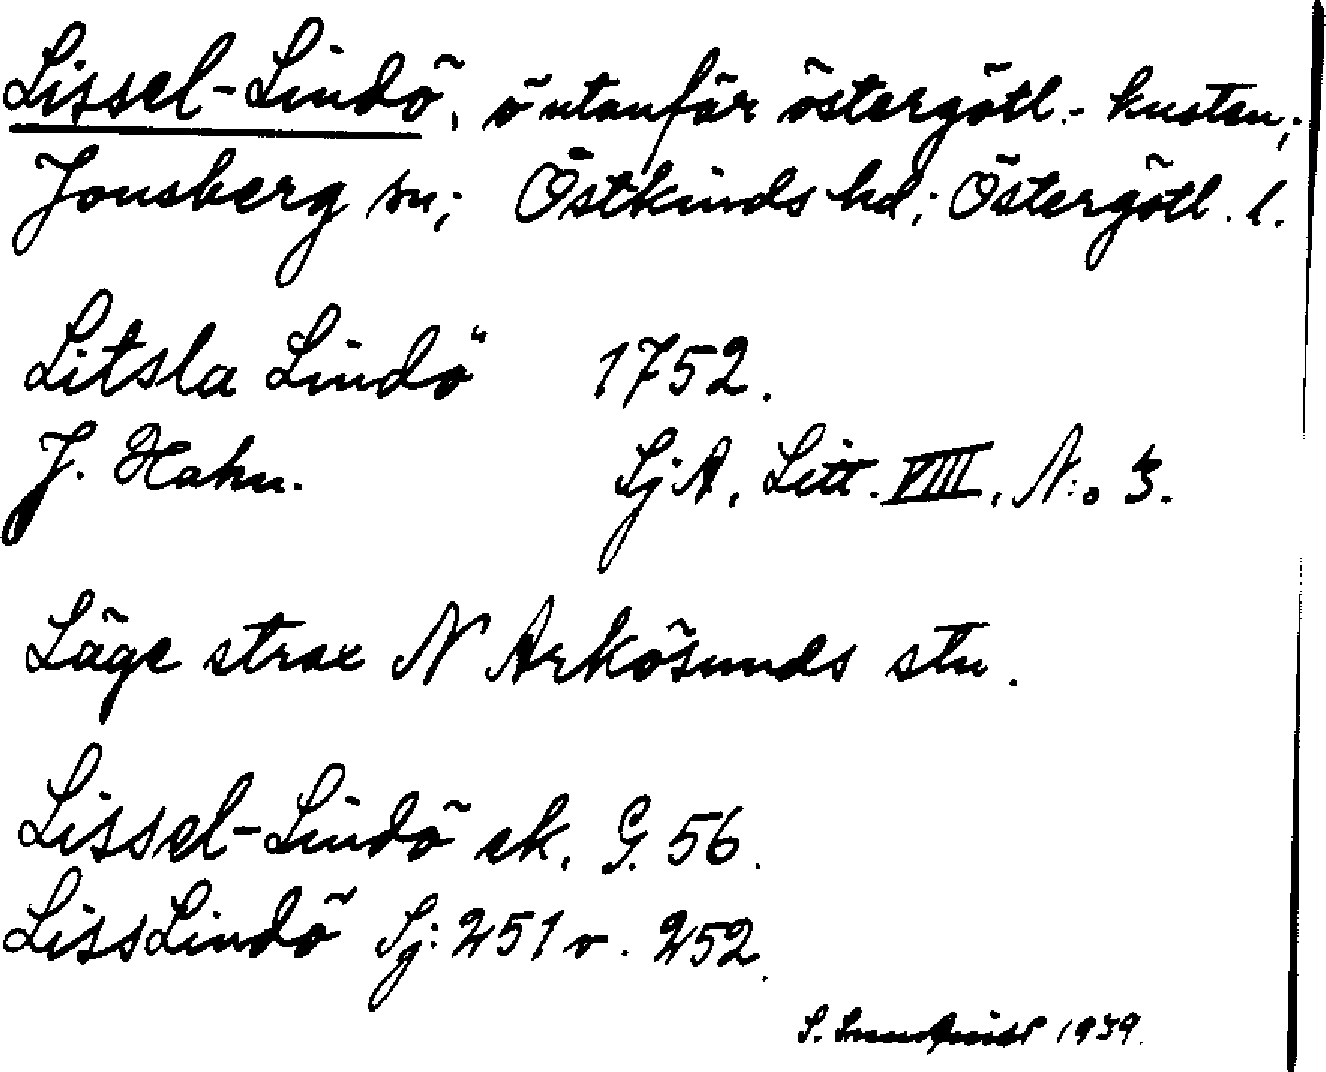 Lissel-Lindö, ö utanför östergötl.-kusten,;
Jonsberg sn; Östkinds hd; Östergötl. l.
Litsla Lindö 1752.
J. Hahn. SjA, Litt. VIII, N:o 3.
Läge strax N Arkösunds stn.
Lissel-Lindö ek. G. 56.
LissLindö Sj: 251 o. 252.
S. Lundqvist 1939.